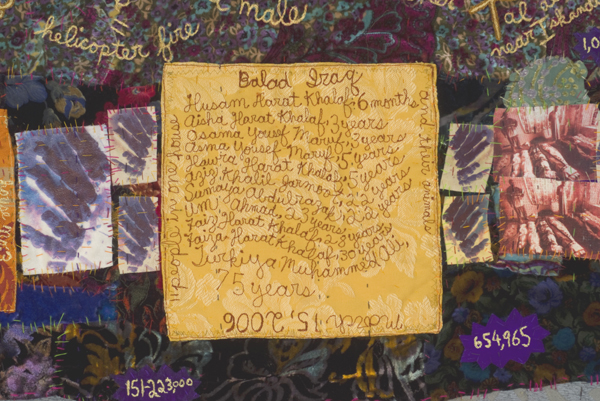 male
helicopter fire
al
near Iskanda
1,0
Balad Iraq
Husam Harat Khalaf, 6 months
Aisha Harat Khalaf, 3 years
Osama Yousef Maruf, 3 years
Asma Yousef Maruf, 5 years
Hawra Harat Khalaf, 5 years
Aziz Khalil Jarmoot, 2 years
Sumaya Abdulrazak, 22 years
Um Ahmad, 23 years
Faiz Harat Khalaf, 28 years
Faiza Harat Khalaf, 30 years
Turkiya Muhammed Ali,
75 years,
March 15, 2006
11 people in one house
and their animals
151-223,000
654,965